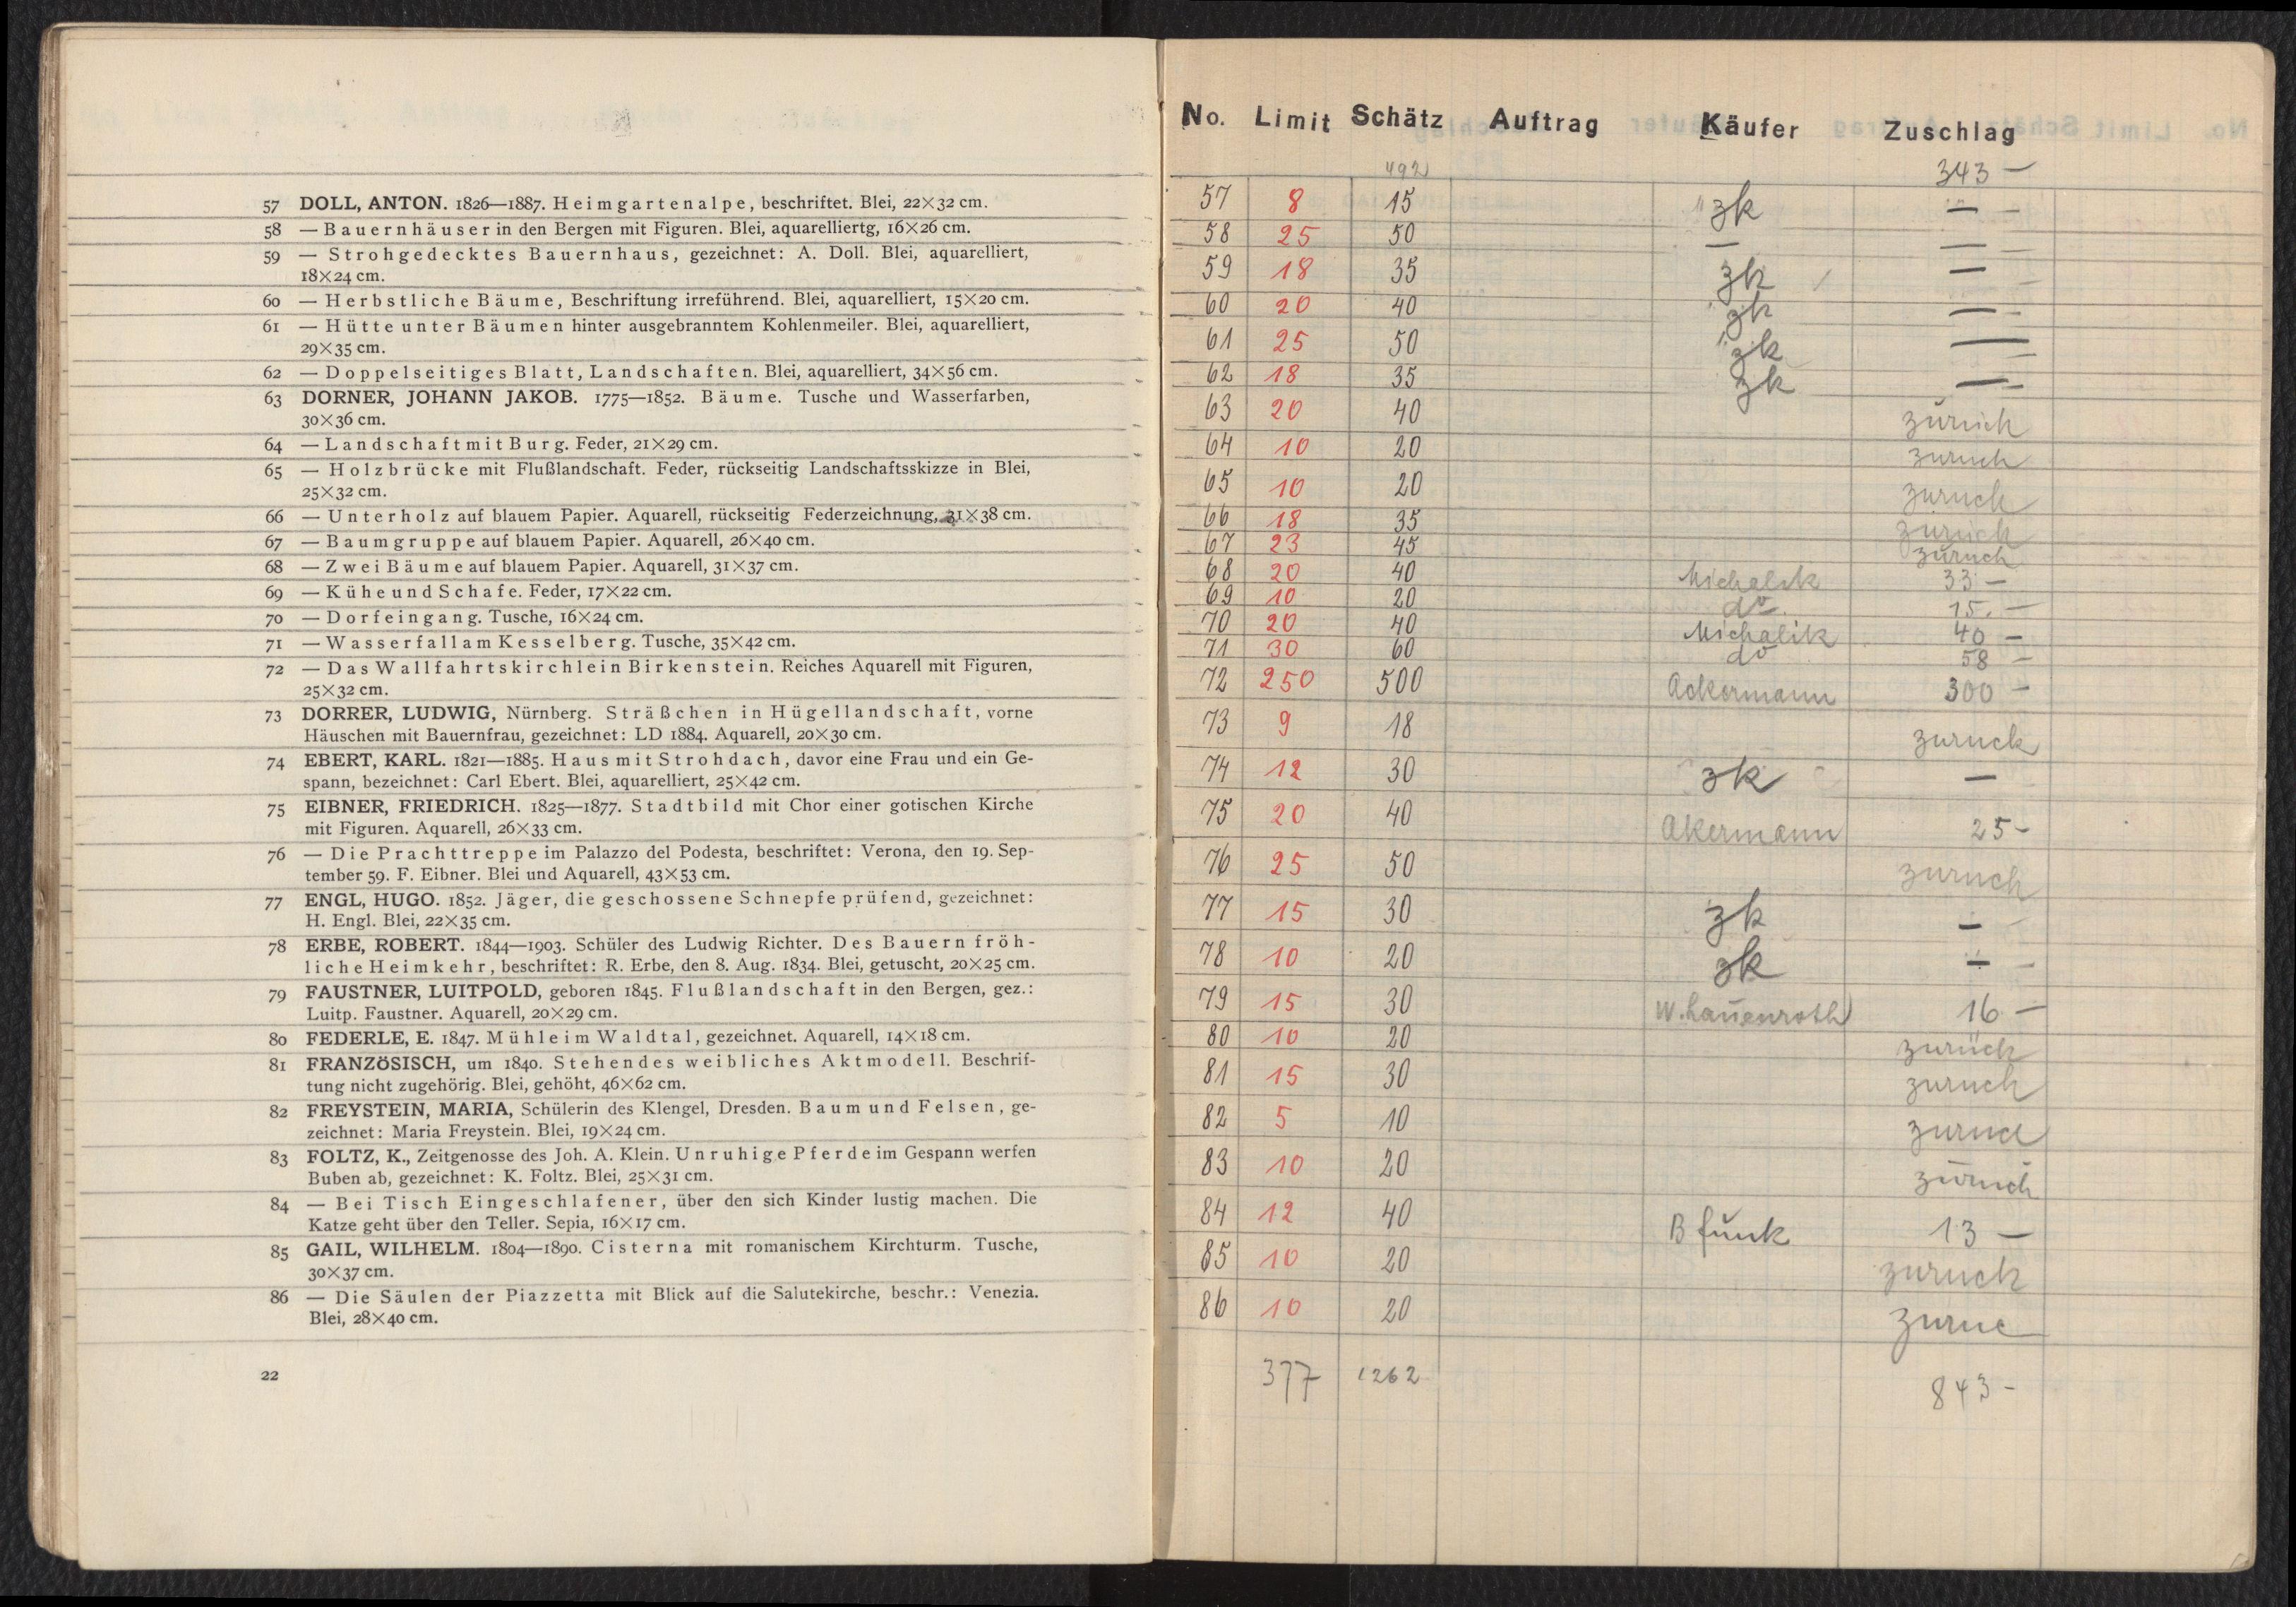 57 DOLL, ANTON. 1826—1887. Heimgartenalpe, beschriftet. Blei, 22×32 cm.
58 — Bauernhäuser in den Bergen mit Figuren. Blei, aquarelliertg, 16×26 cm.
59 — Strohgedecktes Bauernhaus, gezeichnet: A. Doll. Blei, aquarelliert,
18×24 cm.
60 — Herbstliche Bäume, Beschriftung irreführend. Blei, aquarelliert, 15×20 cm.
61 — Hütte unter Bäumen hinter ausgebranntem Kohlenmeiler. Blei, aquarelliert,
29×35 cm.
62 — Doppelseitiges Blatt, Landschaften. Blei, aquarelliert, 34×56 cm.
63 DORNER, JOHANN JAKOB. 1775—1852. Bäume. Tusche und Wasserfarben,
30×36 cm.
64 — Landschaft mit Burg. Feder, 21×29 cm.
65 — Holzbrücke mit Flußlandschaft. Feder, rückseitig Landschaftsskizze in Blei,
25×32 cm.
66 — Unterholz auf blauem Papier. Aquarell, rückseitig Federzeichnung, 31×38 cm.
67 — Baumgruppe auf blauem Papier. Aquarell, 26×40 cm.
68 — Zwei Bäume auf blauem Papier. Aquarell, 31×37 cm.
69 — Kühe und Schafe. Feder, 17×22 cm.
70 — Dorfeingang. Tusche, 16×24 cm.
71 — Wasserfall am Kesselberg. Tusche, 35×42 cm.
72 — Das Wallfahrtskirchlein Birkenstein. Reiches Aquarell mit Figuren,
25×32 cm.
73 DORRER, LUDWIG, Nürnberg. Sträßchen in Hügellandschaft, vorne
Häuschen mit Bauernfrau, gezeichnet: LD 1884. Aquarell, 20×30 cm.
74 EBERT, KARL. 1821—1885. Haus mit Strohdach, davor eine Frau und ein Ge-
spann, bezeichnet: Carl Ebert. Blei, aquarelliert, 25×42 cm.
75 EIBNER, FRIEDRICH. 1825—1877. Stadtbild mit Chor einer gotischen Kirche
mit Figuren. Aquarell, 26×33 cm.
76 — Die Prachttreppe im Palazzo del Podesta, beschriftet: Verona, den 19. Sep-
tember 59. F. Eibner. Blei und Aquarell, 43×53 cm.
77 ENGL, HUGO. 1852. Jäger, die geschossene Schnepfe prüfend, gezeichnet:
H. Engl. Blei, 22×35 cm.
78 ERBE, ROBERT. 1844—1903. Schüler des Ludwig Richter. Des Bauern fröh-
liche Heimkehr, beschriftet: R. Erbe, den 8. Aug. 1834. Blei, getuscht, 20×25 cm.
79 FAUSTNER, LUITPOLD, geboren 1845. Flußlandschaft in den Bergen, gez.:
Luitp. Faustner. Aquarell, 20×29 cm.
80 FEDERLE, E. 1847. Mühle im Waldtal, gezeichnet. Aquarell, 14×18 cm.
81 FRANZÖSISCH, um 1840. Stehendes weibliches Aktmodell. Beschrif-
tung nicht zugehörig. Blei, gehöht, 46×62 cm.
82 FREYSTEIN, MARIA, Schülerin des Klengel, Dresden. Baum und Felsen, ge-
zeichnet: Maria Freystein. Blei, 19×24 cm.
83 FOLTZ, K., Zeitgenosse des Joh. A. Klein. Unruhige Pferde im Gespann werfen
Buben ab, gezeichnet: K. Foltz. Blei, 25×31 cm.
84 — Bei Tisch Eingeschlafener, über den sich Kinder lustig machen. Die
Katze geht über den Teller. Sepia, 16×17 cm.
85 GAIL, WILHELM. 1804—1890. Cisterna mit romanischem Kirchturm. Tusche,
30×37 cm.
86 — Die Säulen der Piazzetta mit Blick auf die Salutekirche, beschr.: Venezia.
Blei, 28×40 cm.
22
No. Limit Schätz Auftrag Käufer Zuschlag
492 343 —
57 8 15 zk —
58 25 50 — —
59 18 35 zk —
60 20 40 zk —
61 25 50 zk —
62 18 35 zk —
63 20 40 zurück
64 10 20 zuruck
65 10 20 zuruck
66 18 35 zurück
67 23 45 zuruck
68 20 40 Michalik 33 —
69 10 20 do. 15. —
70 20 40 Michalik 40 —
71 30 60 do 58 —
72 250 500 Ackermann 300 —
73 9 18 zuruck
74 12 30 zk —
75 20 40 Akermann 25 —
76 25 50 zuruck
77 15 30 zk —
78 10 20 zk —
79 15 30 W. Lauenroth 16 —
80 10 20 zurück
81 15 30 zuruck
82 5 10 zuruck
83 10 20 zuruck
84 12 40 B funk 13 —
85 10 20 zuruck
86 10 20 zuruc
377 1262 843 —